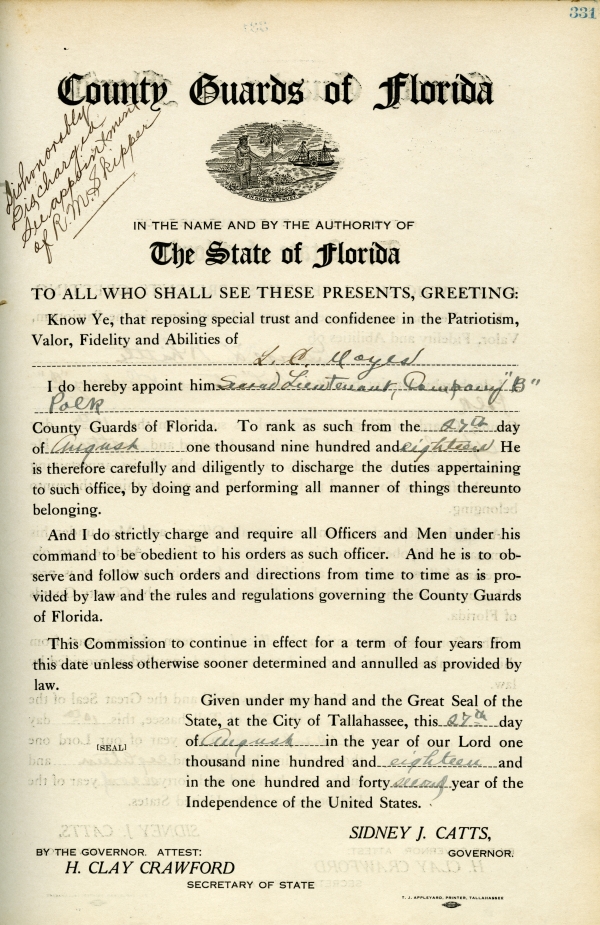 331
County Guards of Florida
Dishonorably
Discharged
See appointment
of R. M. Skipper
IN GOD WE TRUST
IN THE NAME AND BY THE AUTHORITY OF
The State of Florida
TO ALL WHO SHALL SEE THESE PRESENTS, GREETING:
Know Ye, that reposing special trust and confidence in the Patriotism,
Valor, Fidelity and Abilities of
L. C.
I do hereby appoint him Second Lieutenant, Company "B"
Polk
County Guards of Florida. To rank as such from the 27th day
of August one thousand nine hundred and eighteen He
is therefore carefully and diligently to discharge the duties appertaining
to such office, by doing and performing all manner of things thereunto
belonging.
And I do strictly charge and require all Officers and Men under his
command to be obedient to his orders as such officer. And he is to ob-
serve and follow such orders and directions from time to time as is pro-
vided by law and the rules and regulations governing the County Guards
of Florida.
This Commission to continue in effect for a term of four years from
this date unless otherwise sooner determined and annulled as provided by
law.
Given under my hand and the Great Seal of the
State, at the City of Tallahassee, this 27th day
[SEAL] of August in the year of our Lord one
thousand nine hundred and eighteen and
in the one hundred and forty second year of the
Independence of the United States.
SIDNEY J. CATTS,
BY THE GOVERNOR. ATTEST: GOVERNOR.
H. CLAY CRAWFORD
SECRETARY OF STATE
T. J. APPLEYARD, PRINTER, TALLAHASSEE